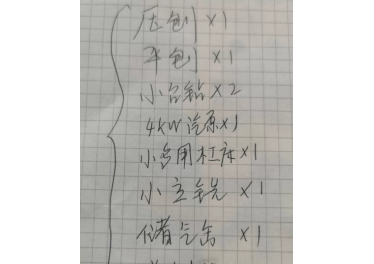 压刨×1
平刨×1
小台钻×2
4KW汽泵×1
小多用木工床×1
小立铣×1
储气缶×1